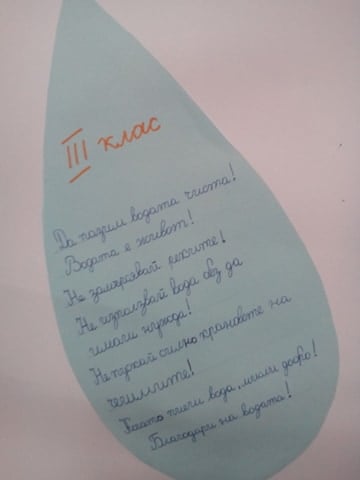 III клас
Да пазим водата чиста!
Водата е живот!
Не замърсявай реките!
Не използвай вода без да
имаш нужда!
Не пускай силно крановете на
чешмите!
Когато пиеш вода, мисли добро!
Благодари на водата!